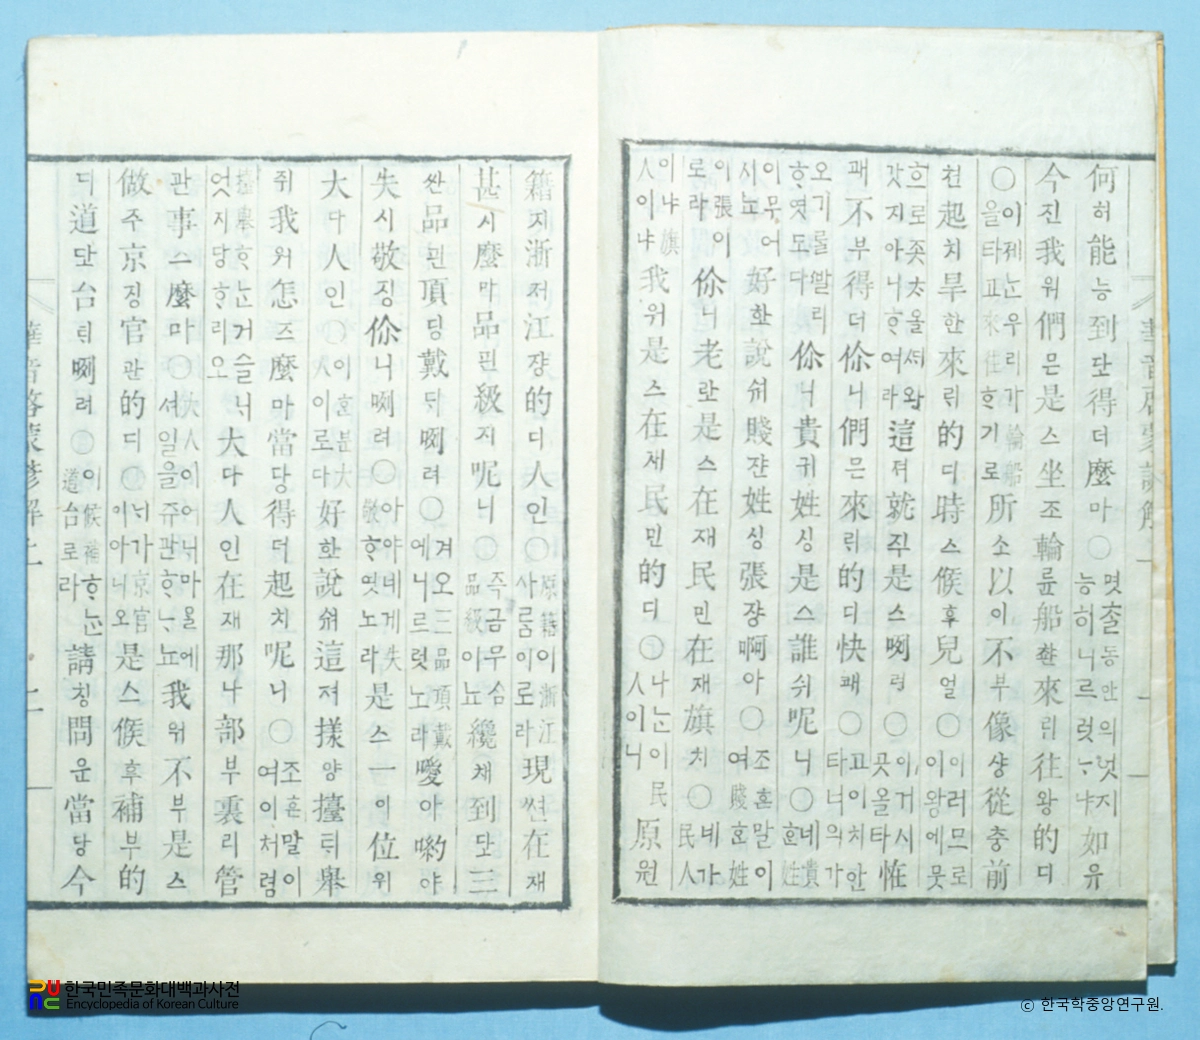 何허能능到단得더麼마〇몃츨동안의넛지如유
今진我워們믄是스坐조輪륜船촨來릭往왕的디
〇이졔는우리가輪船을타고來往ᄒᆞ기로所소以이不부像샹從충前
천起치旱한來릭的디時스候후兒얼〇이러므로이왕에뭇
흐로좃ᄎᆞ올셔왕갓지아니ᄒᆞ여라這져就쥬是스咧려〇이거시곳올타恠
괘不부得더你니們믄來릭的디快쾌〇고이치안타너의가
오기를ᄲᆞᆯ리ᄒᆞ엿도다你니貴귀姓싱是스誰쉬呢니〇네貴혼姓
이무어시뇨好화說쉬賤쟌姓싱張쟝啊아〇조흔말이여賤호姓
이張이로라你니老란是스在재民민在재旗치〇네가民人
이냐旗人이냐我워是스在재民민的디〇나는이民人이니原원
籍지浙져江쟝的디人인〇原籍이浙江사ᄅᆞᆷ이로라現쎤在재
甚시麼마品핀級지呢니〇즉금무슴品級이뇨纔채到단三
싼品핀頂딩戴ᄃᆡ咧려〇겨오三品頂戴에니르럿노라噯아喲야
失시敬징你니咧려〇아야네게失敬ᄒᆞ엿노라是스一이位위
大다人인〇이혼분大人이로다好화說쉬這져㨾양擡ᄐᆡ舉
쥐我워怎즈麼마當당得더起치呢니〇조흔말이여이처럼
擡擧ᄒᆞ는거슬ᄂᆡ엇지당ᄒᆞ리오大다人인在재那나部부裏리管
관事스麼마〇大人이어ᄂᆡ마을에셔일을쥬관ᄒᆞᄂᆞ뇨我워不부是스
做주京징官관的디〇ᄂᆡ가京官이아니오是스候후補부的
디道단台ᄐᆡ咧려〇이候補ᄒᆞ는道台로라請칭問운當당今
華音啓蒙諺解上
한국민족문화대백과사전
Encyclopedia of Korean Culture
ⓒ 한국학중앙연구원.